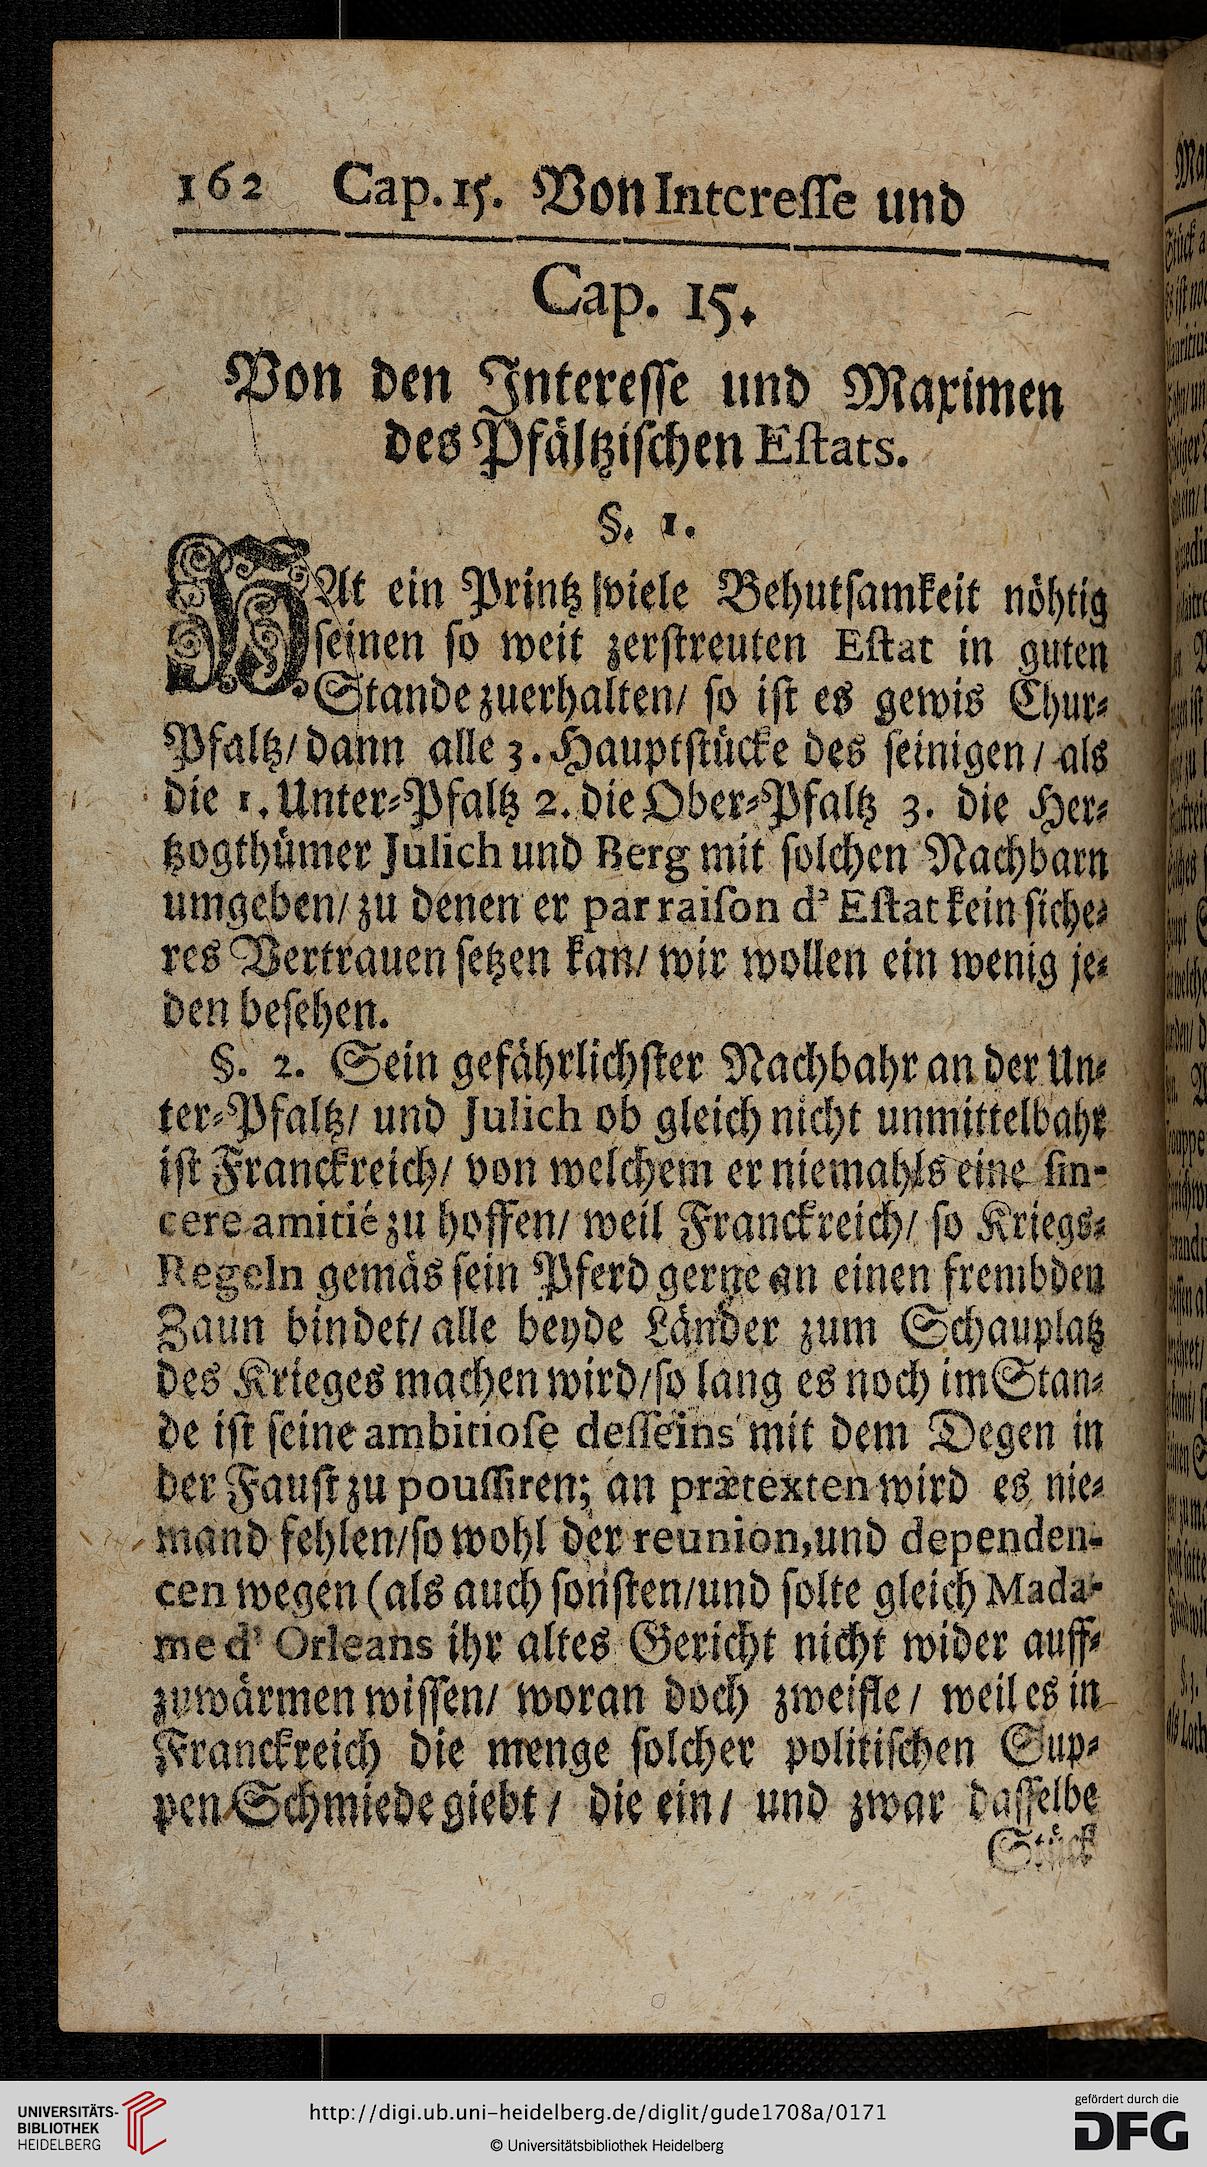 162 Cap. 15. Von Intcreſſe und
Cap. 15.
Von den Intereſſe und Maximen
des Pfältziſchen Eſtats.
§. 1.
HAt ein Printz viele Behutſamkeit nöhtig
ſeinen ſo weit zerſtreuten Eſtat in guten
Stande zuerhalten/ ſo iſt es gewis Chur-
Pfaltz/ dann alle 3. Hauptſtücke des ſeinigen/ als
die 1. Unter-Pfaltz 2. die Ober-Pfaltz 3. die Her-
tzogthümer Julich und Berg mit ſolchen Nachbarn
umgeben/ zu denen er par raiſon d' Eſtat kein ſiche-
res Vertrauen ſetzen kan/ wir wollen ein wenig je-
den beſehen.
§. 2. Sein gefährlichſter Nachbahr an der Un-
ter-Pfaltz/ und Julich ob gleich nicht unmittelbahr
iſt Franckreich/ von welchem er niemahls eine ſin-
cere amitié zu hoffen/ weil Franckreich/ ſo Kriegs-
Regeln gemäs ſein Pferd gerne an einen frembden
Zaun bindet/ alle beyde Länder zum Schauplatz
des Krieges machen wird/ ſo lang es noch im Stan-
de iſt ſeine ambitioſe deſſeins mit dem Degen in
der Fauſt zu pouſſiren; an prætexten wird es nie-
mand fehlen/ ſo wohl der reunion, und dependen-
cen wegen (als auch ſonſten/ und ſolte gleich Mada-
me d' Orleans ihr altes Gericht nicht wider auff-
zuwärmen wiſſen/ woran doch zweifle/ weil es in
Franckreich die menge ſolcher politiſchen Sup-
pen Schmiede giebt/ die ein/ und zwar daſſelbe
Stück
UNIVERSITÄTS-
BIBLIOTHEK
HEIDELBERG
http://digi.ub.uni-heidelberg.de/diglit/gude1708a/0171
© Universitätsbibliothek Heidelberg
gefördert durch die
DFG